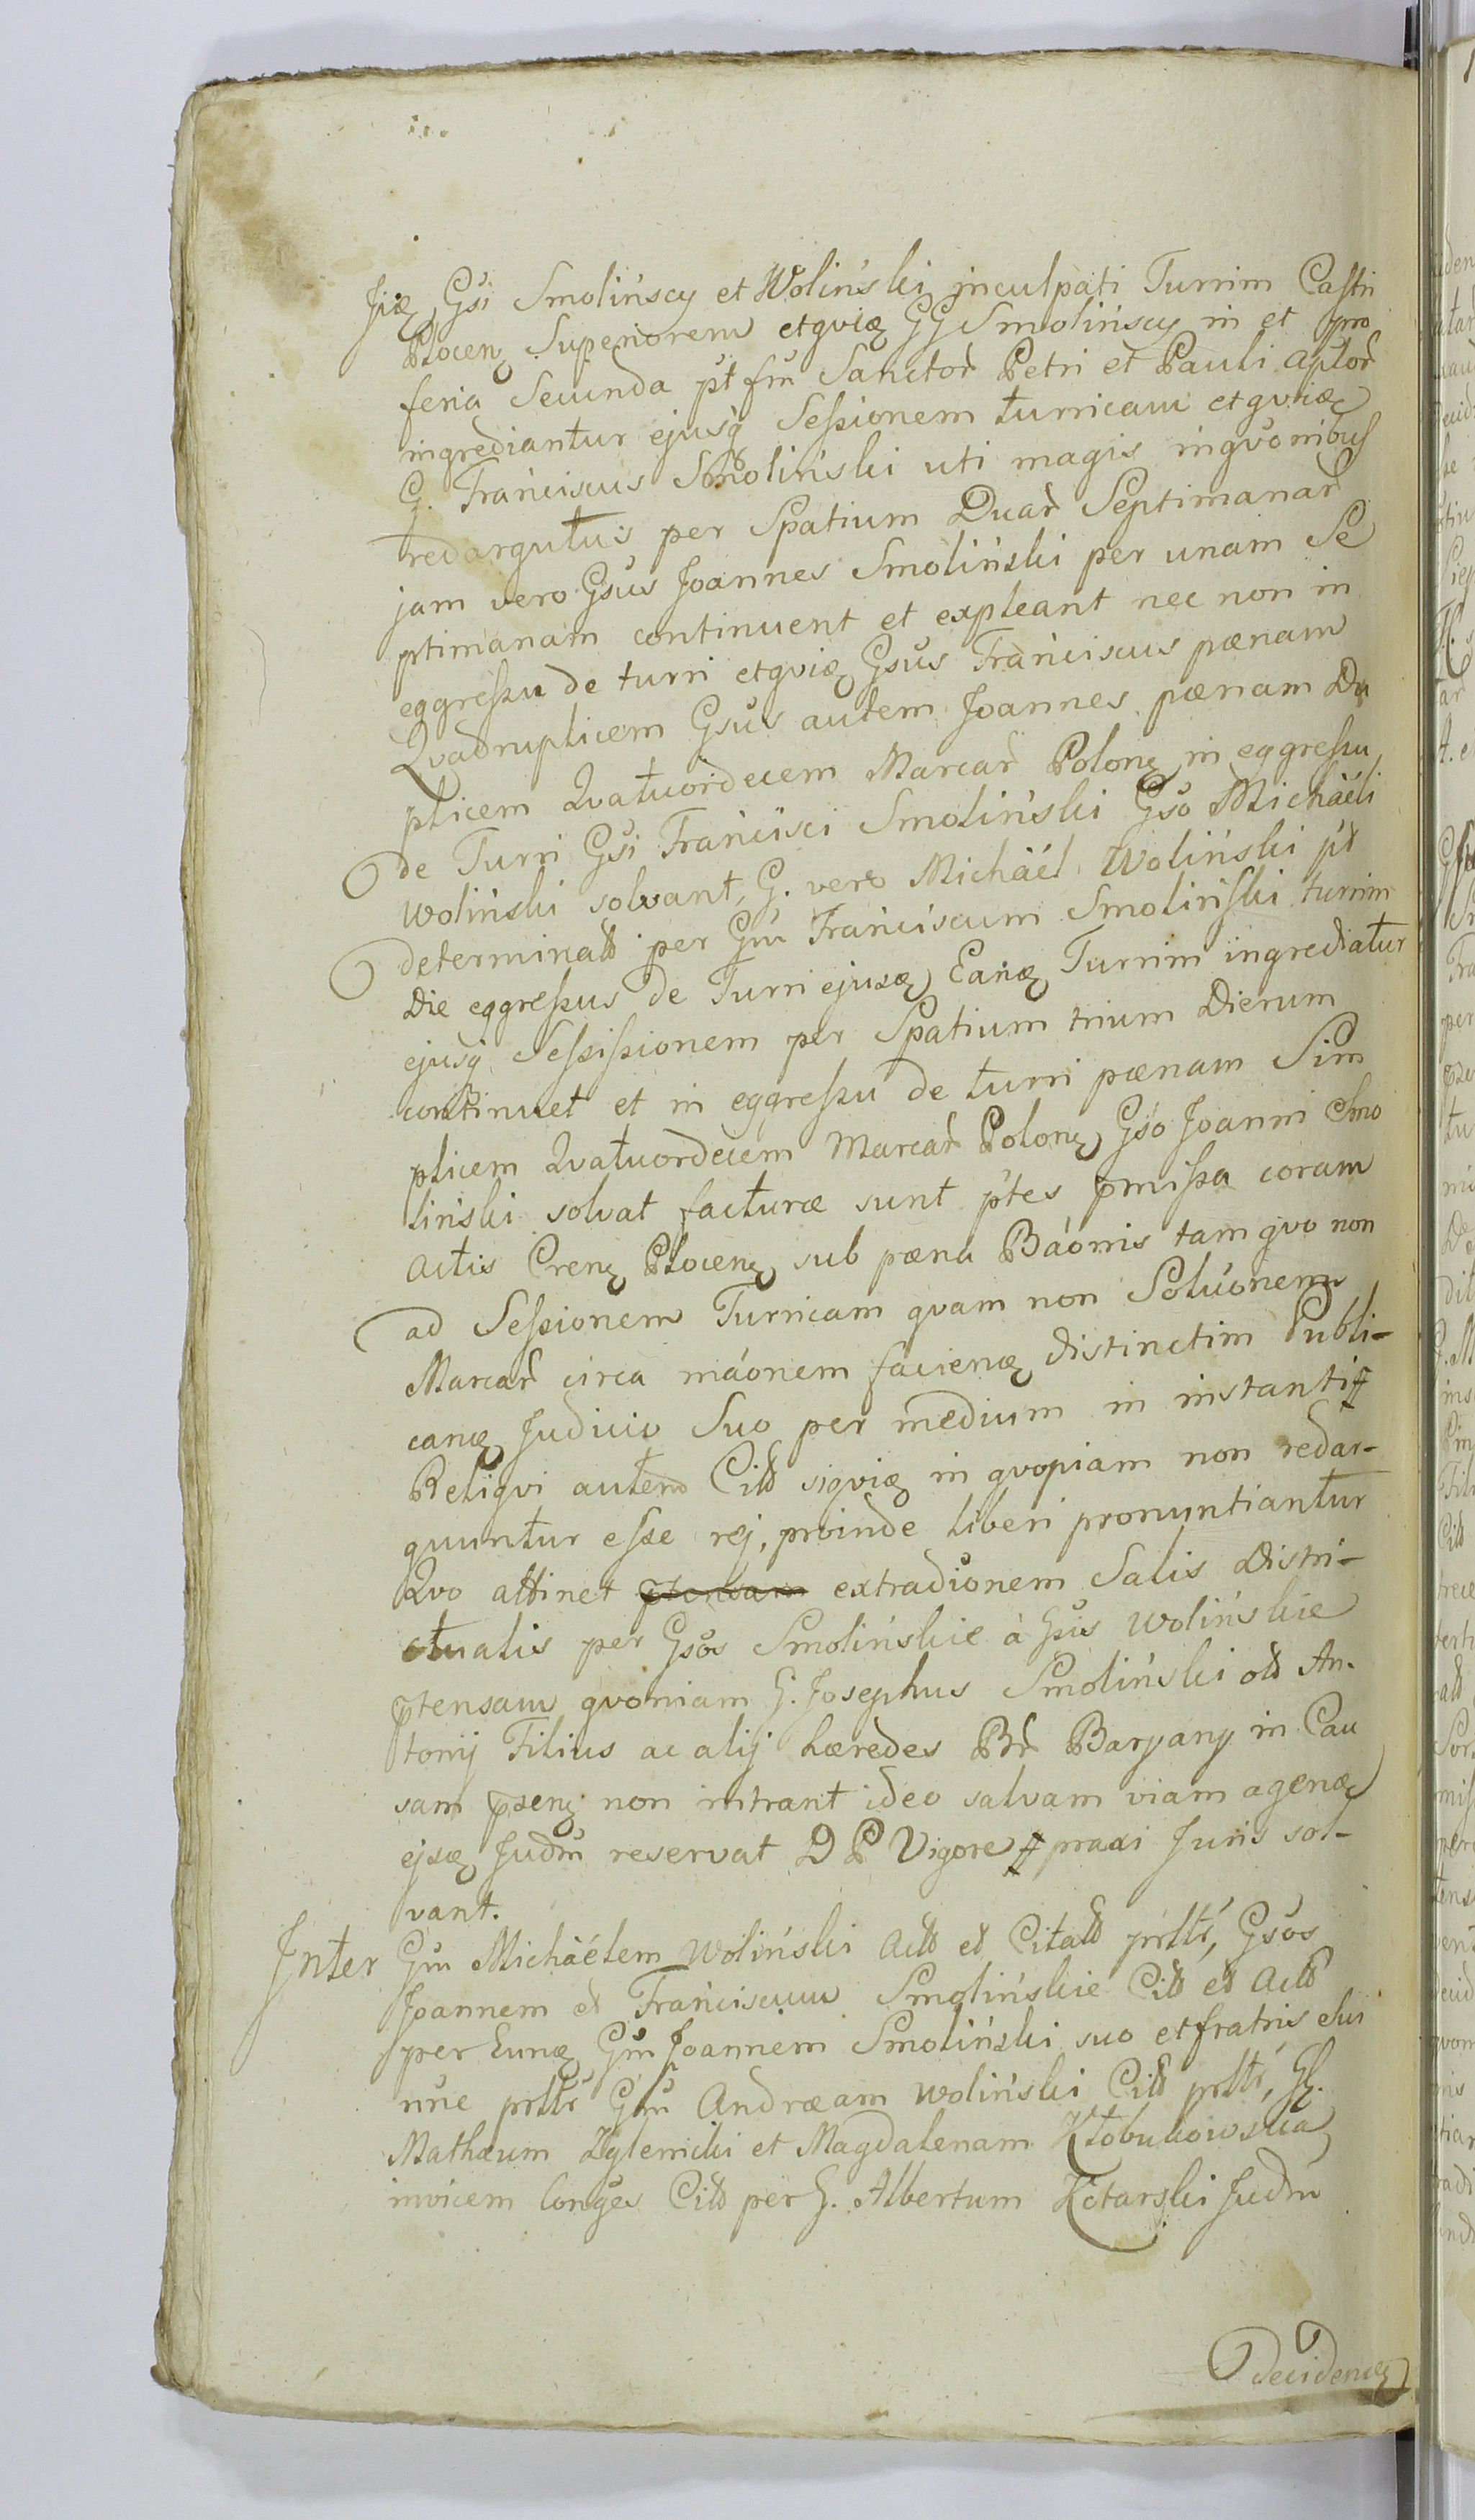 Iiꝫ Gsi Smolińscy et Woliński inculpati Turrim Castri
Plocenꝫ Superiorem etqviꝫ GG Smolińscy in et pro
feria Secunda pt fm Sanctor Petri et Pauli Aplor
ingrediantur ejusq̨ Seßionem turricam etqviꝫ
G. Franciscus Smoliński uti magis inqvonibus
redargutus per Spatium Duar Septimanar
jam vero Gsus Joannes Smoliński per unam Se
ptimanam continuent et expleant nec non in
eggreßu de turri etqviꝫ Gsus Franciscus pœnam
Qvadruplicem Gsus autem Joannes pœnam Du
plicem Qvatuordecem Marcar Polonꝫ in eggreßu
de Turri Gsi Francisci Smoliński Gso Michaëli
Woliński solvant, G. vero Michäél Woliński pt
determinatt per Gm Franciscum Smoliński turrim
Die eggreßus de Turri ejusꝫ Eanꝫ Turrim ingrediatur
ejusq̨ Seßißionem per Spatium trium Dierum
continuet et in eggreßu de turri pœnam Sim
plicem Qvatuordecem Marcar Polonꝫ Gso Joanni Smo
liński solvat facturæ sunt ptes pmißa coram
Actis Crenꝫ Plocenꝫ sub pœna Báonis tam qvo non
ad Seßionem Turricam qvam non Soluonem
Marcar circa máonem facienꝫ distinctim Publi-
canꝫ Judicio Suo per medium in instanti
Reliqvi autem Citt siqviꝫ in qvopiam non redar-
guuntur eße rej, proinde liberi pronuntiantur
Qvo attinet ptensam extradionem Salis Distri-
ctualis per Gsos Smolińskie à Gsis Wolińskie
ptensam qvoniam G. Josephus Smoliński ott An-
tonij Filius ac alij hæredes Br Baryany in Cau
sam psenꝫ non intrant ideo salvam viam agenꝫ
ejsꝫ Judm reservat D P Vigore praxi Juris sol-
vant.
Inter Gm Michäélem Woliński Actt et Citatt prltr, Gsos
Joannem et Franciscum Smolińskie Citt et Actt
per Eunꝫ Gm Joannem Smoliński suo et fratris sui
nne prltr Gm Andræam Woliński Citt prltr, G.
Mathæum Zglenicki et Magdalenam Kłobukowska
invicem Conges Citt per G. Albertum Kotarski Judm
Decidenꝫ